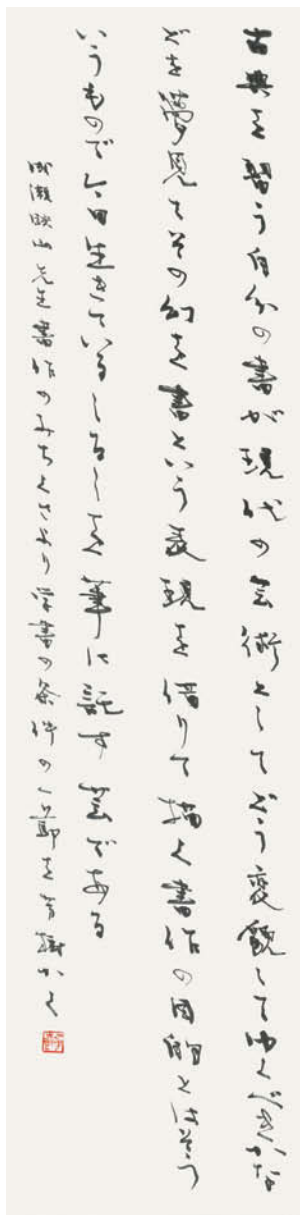 古典を習う自分の書が現代の芸術としてどう変貌してゆくべきかな
どを夢見てその幻を書という表現を借りて描く書作の目的とはそう
いうもので今日生きているしるしを筆に託す芸である
成瀬映山先生書作のみちくさより学書の条件の一節を 樹かく